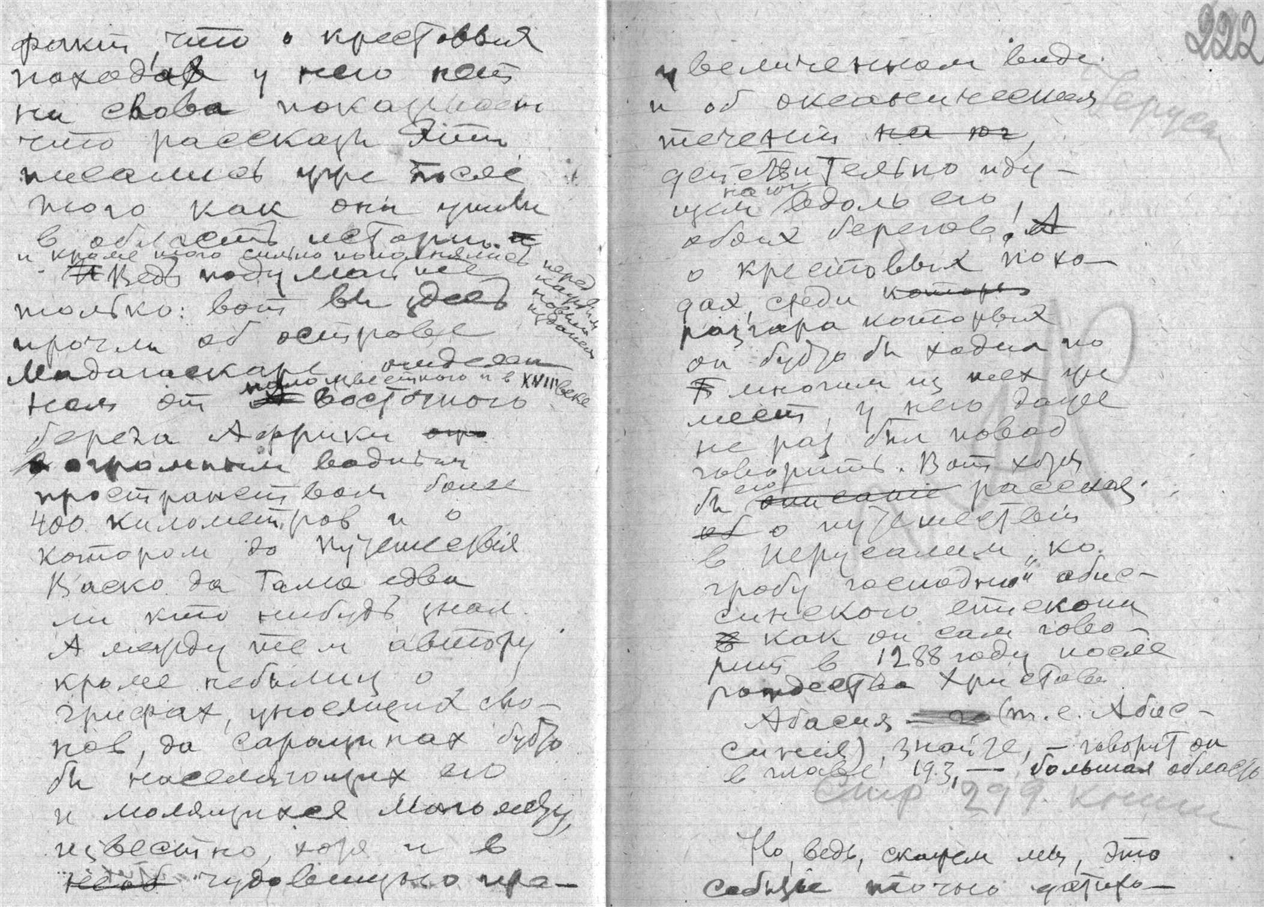 факт, что о крестовых
походах у него нет
ни слова показывает
что рассказы эти
писались уже после
того как они ушли
в область истории.
и кроме того сильно пополнялись перед
каждым
новым
изданием
Ведь подумайте
только: вот вы здесь
прочли об острове
Мадагаскаре, отделен
мало известного и в XVIII веке
ном от восточного
берега Африки
огромным водным
пространством более
400 километров и о
котором до путешествия
Васко да Гама едва
ли кто нибудь знал.
А между тем автору
кроме небылиц о
грифах, уносящих сло-
нов, да сарацинах будто
бы населяющих его
и молящихся Магомету,
известно, хотя и в
чудовищно пре-
222
увеличенном виде
и об океанических
Иерусал
течений на юг,
действительно иду-
на юг
щем вдоль его
обоих берегов! А
о крестовых похо-
дах, среди которых
разгара которых
он будто бы ходил по
многим из тех же
мест, у него даже
не раз был повод
говорить. Вот хотя
бы его описание рассказ
об о путешествии
в Иерусалим „ко
гробу господню" абис-
синского епископа
как он сам гово-
рит в 1288 году после
рождества Христова
Абасия (т.е. Абис-
синия), знайте, – говорит он
в главе 193, — большая область
Стр 299 книги
Но, ведь, скажем мы, это
событие точно датиро-